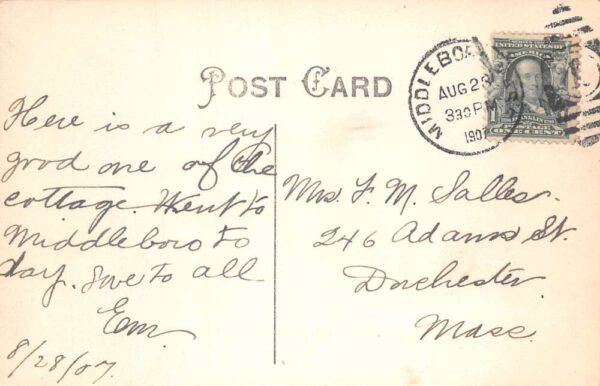 POST CARD
MIDDLEBORO
AUG 28
330 PM
1907
UNITED STATES OF
AMERICA
FRANKLIN
POSTAGE
ONE CENT
Here is a very
good one of the
cottage. Went to
Middleboro to
day. Love to all
Em.
8/28/07
Mrs. F. M. Salles.
246 Adams St.
Dorchester
Mass.